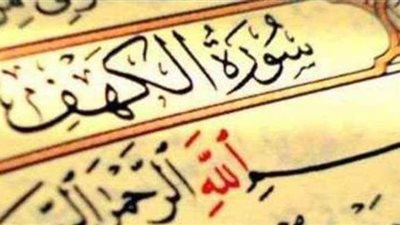 سُورَةُ الكَهْفِ
بِسْمِ اللَّهِ الرَّحْمَٰنِ